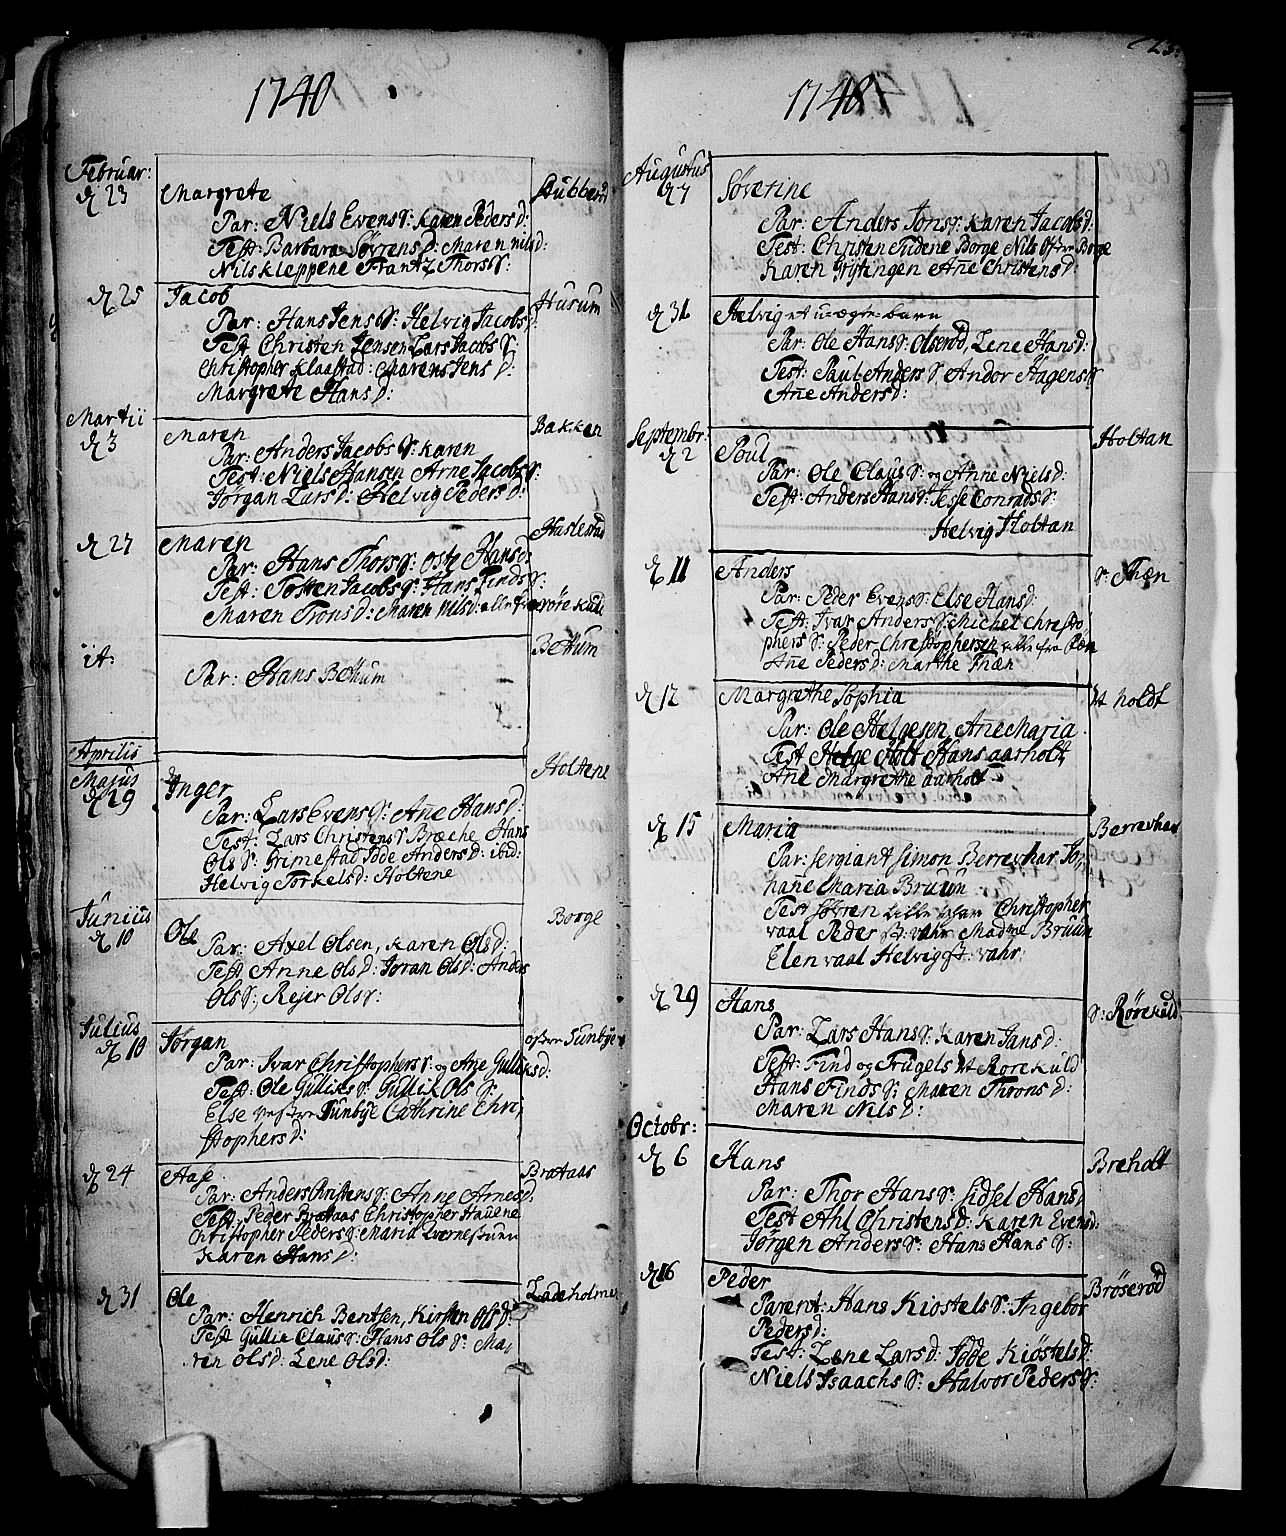 1740
Februar:
d 23 Margrete Bubberd
Par: Niels Evens S: Karen Peders d:
Test: Barbara Søvrens d: Maren nils d:
Nils Kleppene Frantz Thors S:
d 25 Jacob Husum
Par: Hans Jens S: Helvig Jacobs d:
Test Christen Jensen Lars Jacobs S:
Christopher Klaastad: Maren Jens d:
Margrete Hans d:
Martii
d 3 Maren Bakken
Par: Anders Jacobs S: Karen
Test: Niels Hansen Arne Jacobs S:
Jørgan Lars d: Helvig Peders d:
d 27 Maren Haslestad
Par: Hans Thors S: Oste Hans d:
Test: Tosten Jacobs S: Hans Finds S:
Maren Trons d: Maren Nils d: alle fra Rørekuld
it: Bettum
Par: Hans Bettum
Aprilis
Majus
d 29 Inger Holtene
Par: Lars Evens S: Anne Hans d:
Test: Lars Christens S Bræche Hans
Ols S: Grimestad Jøde Anders d: ibid:
Helvig Torkels d: Holtene
Juniius
d 10 Ole Borge
Par: Axel Olsen, Karen Ols d:
Test Anne Ols d: Joran Ols d: Anders
Ols S:, Rejer Ols S:
Julius
d 10 Jørgan Øster Sunbye
Par: Ivar Christophers S: og Ane Gulliks d:
Test: Ole Gulliks S: Gullik Ols S:
Else vester Sunbye Cathrine Chri,
stophers d:
d 24 Aase Brataas
Par: Anders Christens S: Anne Arnes d.
Test: Peder Brataas Christopher Hauene
Christopher Peders S: Maria Qvernestuun
Karen Hans d:
d 31 Ole Ladeholmen
Par: Henrich Bentsen, Kirsten Ols d:
Test Gullic Claus S: Hans Ols S: Ma,
ren Ols d: Lene Ols d:
23.
1740
Augustus
d 7 Søverine
Par: Anders Jons S: Karen Jacobs d:
Test: Christen Borge Nils Borge
Karen Gryttingen Anne Christens d:
d 31 Helvig et uægte barn
Par: Ole Hans S: Olserød, Lene Hans d:
Test: Paul Anders S: Andor Aagens S:
Anne Anders d:
Septembr:
d 2 Poul Holtan
Par: Ole Claus S: og Anne Niels d:
Test: Anders Hans S: Jesse Conrads S:
Helvig Holtan
d 11 Anders S: Thæn
Par: Peder Evens S: Else Hans d:
Test: Ivar Anders S: Michel Christo
phers S: Peder Christophersen alle fra
Anne Peders d: Marthe Thæn
d 12 Margrethe Sophia holdt
Par: Ole Helgesen, Anne Maria
Test Helge Holt Hans aarholt,
Ane Margrethe aarholt
d 15 Maria Berrevhar
Par: Sergiant Simon Berrevhar, Jo,
hanne Maria Bruun
Test Søvren Lille vhar Christopher
vaal Peder St: vahr Madme Bruun
Elen vaal Helvig St: vahr:
d 29 Hans S: Rørekuld
Par: Lars Hans S: Karen Jans d:
Test: Find og Trugels Rorekuld
Hans Finds S: Maren Throns d:
Maren Nils d:
Octobr:
d 6 Hans Breholt
Par: Thor Hans S: Sidsel Hans d
Test Ahl Christens d: Karen Evens d:
Jørgen Anders S: Hans Hans S:
d 16 Peder Brøserød
Parent: Hans Kiostels S: Ingebor
Peders d:
Test: Lene Lars d: Jøde Kiøstels d:
Niels Isaachs S: Halvor Peders S: